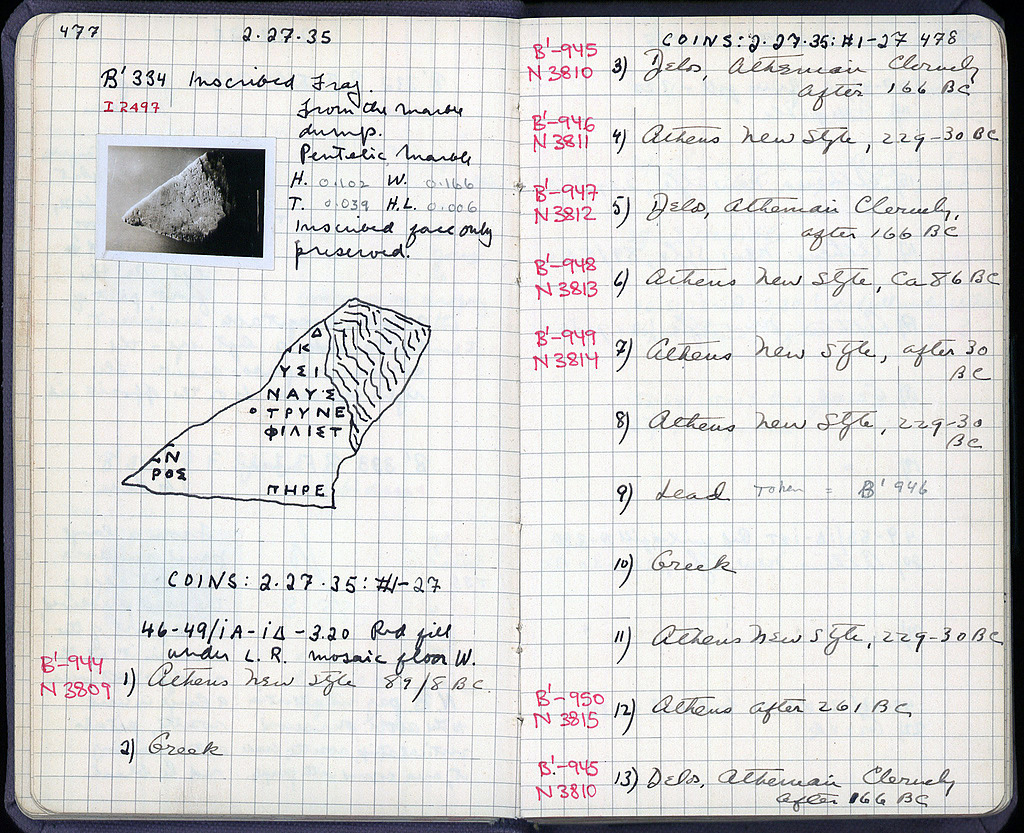 477
2.27.35
B' 334 Inscribed Frag.
I 2497
From the marble
dump.
Pentelic marble
H. 0.102 W. 0.166
T. 0.039 H.L. 0.006
Inscribed face only
preserved.
Δ
Κ
ΥΣΙ
ΝΑΥΣ
ΟΤΡΥΝΕ
ΦΙΛΙΣΤ
Ν
ΡΟΣ
ΠΗΡΕ
COINS: 2.27.35: #1-27
46-49/ΙΑ-ΙΔ -3.20 Red fill
under L. R. mosaic floor W.
B'-944
N 3809
1) Athens New Style 89/8 BC.
2) Greek
COINS: 2.27.35: #1-27 478
B'-945
N 3810
3) Delos, Athenian Cleruchy
after 166 BC
B'-946
N 3811
4) Athens New Style, 229-30 BC
B'-947
N 3812
5) Delos, Athenian Cleruchy,
after 166 BC
B'-948
N 3813
6) Athens New Style, Ca 86 BC
B'-949
N 3814
7) Athens New Style, after 30
BC
8) Athens New Style, 229-30
BC
9) Lead Token = B' 946
10) Greek
11) Athens New Style, 229-30 BC
B'-950
N 3815
12) Athens after 261 BC
B'-945
N 3810
13) Delos, Athenian Cleruchy
after 166 BC